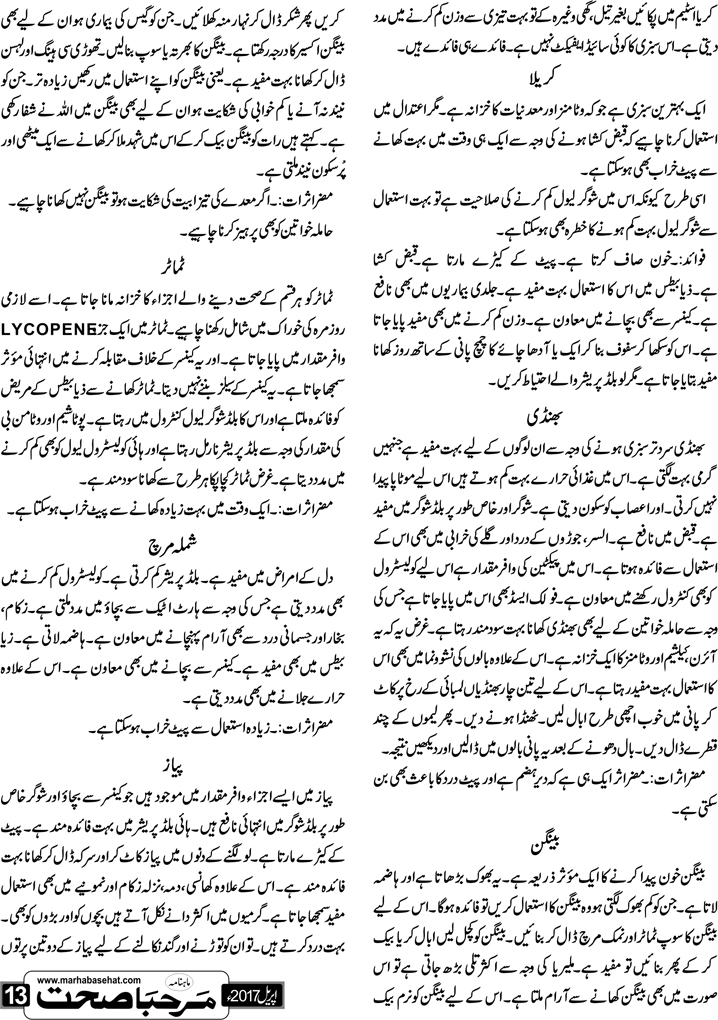 کر یا اسٹیم میں پکائیں بغیر تیل، گھی وغیرہ کے تو بہت تیزی سے وزن کم کرنے میں مدد
دیتی ہے۔ اس سبزی کا کوئی سائیڈ ایفیکٹ نہیں ہے۔ فائدے ہی فائدے ہیں۔
کریلا
ایک بہترین سبزی ہے جو کہ وٹامنز اور معدنیات کا خزانہ ہے۔ مگر اعتدال میں
استعمال کرنا چاہیے کہ قبض کشا ہونے کی وجہ سے ایک ہی وقت میں بہت کھانے
سے پیٹ خراب بھی ہوسکتا ہے۔
اسی طرح کیونکہ اس میں شوگر لیول کم کرنے کی صلاحیت ہے تو بہت استعمال
سے شوگر لیول بہت کم ہونے کا خطرہ بھی ہوسکتا ہے۔
فوائد:۔ خون صاف کرتا ہے۔ پیٹ کے کیڑے مارتا ہے۔ قبض کشا
ہے۔ ذیابیطس میں اس کا استعمال بہت مفید ہے۔ جلدی بیماریوں میں بھی نافع
ہے۔ کینسر سے بھی بچانے میں معاون ہے۔ وزن کم کرنے میں بھی مفید پایا جاتا
ہے۔ اس کو سکھا کر سفوف بنا کر ایک یا آدھا چائے کا چمچ پانی کے ساتھ روز کھانا
مفید بتایا جاتا ہے۔ مگر لو بلڈ پریشر والے احتیاط کریں۔
بھنڈی
بھنڈی سرد تر سبزی ہونے کی وجہ سے ان لوگوں کے لیے بہت مفید ہے جنہیں
گرمی بہت لگتی ہے۔ اس میں غذائی حرارے بہت کم ہوتے ہیں اس لیے موٹاپا پیدا
نہیں کرتی۔ اور اعصاب کو سکون دیتی ہے۔ شوگر اور خاص طور پر بلڈ شوگر میں مفید
ہے۔ قبض میں نافع ہے۔ السر، جوڑوں کے درد اور گلے کی خرابی میں بھی اس کے
استعمال سے فائدہ ہوتا ہے۔ اس میں پیکٹین کی وافر مقدار ہے اس لیے کولیسٹرول
کو بھی کنٹرول رکھنے میں معاون ہے۔ فولک ایسڈ بھی اس میں پایا جاتا ہے جس کی
وجہ سے حاملہ خواتین کے لیے بھی بھنڈی کھانا بہت سودمند رہتا ہے۔ غرض یہ کہ یہ
آئرن، کیلشیم اور وٹامنز کا ایک خزانہ ہے۔ اس کے علاوہ بالوں کی نشوونما میں بھی اس
کا استعمال بہت مفید رہتا ہے۔ اس کے لیے تین چار بھنڈیاں لمبائی کے رخ پر کاٹ
کر پانی میں خوب اچھی طرح ابال لیں۔ ٹھنڈا ہونے دیں۔ پھر لیموں کے چند
قطرے ڈال دیں۔ بال دھونے کے بعد یہ پانی بالوں میں ڈالیں اور دیکھیں نتیجہ۔
مضر اثرات:۔ مضر اثر ایک ہی ہے کہ دیر ہضم ہے اور پیٹ درد کا باعث بھی بن
سکتی ہے۔
بینگن
بینگن خون پیدا کرنے کا ایک مؤثر ذریعہ ہے۔ یہ بھوک بڑھاتا ہے اور ہاضمہ
لاتا ہے۔ جن کو کم بھوک لگتی ہو وہ بینگن کا استعمال کریں تو فائدہ ہوگا۔ اس کے لیے
بینگن کا سوپ ٹماٹر اور نمک مرچ ڈال کر بنائیں۔ بینگن کو کچل لیں ابال کر یا بیک
کر کے پھر بنائیں تو مفید ہے۔ ملیریا کی وجہ سے اکثر تلی بڑھ جاتی ہے تو اس
صورت میں بھی بینگن کھانے سے آرام ملتا ہے۔ اس کے لیے بینگن کو نرم بیک
کریں پھر شکر ڈال کر نہار منہ کھلائیں۔ جن کو گیس کی بیماری ہو ان کے لیے بھی
بینگن اکسیر کا درجہ رکھتا ہے۔ بینگن کا بھرتہ یا سوپ بنالیں۔ تھوڑی سی ہینگ اور لہسن
ڈال کر کھانا بہت مفید ہے۔ یعنی بینگن کو اپنے استعمال میں رکھیں زیادہ تر۔ جن کو
نیند نہ آنے یا کم خوابی کی شکایت ہو ان کے لیے بھی بینگن میں اللہ نے شفا رکھی
ہے۔ کہتے ہیں رات کو بینگن بیک کر کے اس میں شہد ملا کر کھانے سے ایک میٹھی اور
پُرسکون نیند ملتی ہے۔
مضر اثرات:۔ اگر معدے کی تیزابیت کی شکایت ہو تو بینگن نہیں کھانا چاہیے۔
حاملہ خواتین کو بھی پرہیز کرنا چاہیے۔
ٹماٹر
ٹماٹر کو ہر قسم کے صحت دینے والے اجزاء کا خزانہ مانا جاتا ہے۔ اسے لازمی
روز مرہ کی خوراک میں شامل رکھنا چاہیے۔ ٹماٹر میں ایک جز LYCOPENE
وافر مقدار میں پایا جاتا ہے۔ اور یہ کینسر کے خلاف مقابلہ کرنے میں انتہائی مؤثر
سمجھا جاتا ہے۔ یہ کینسر کے سیلز بننے نہیں دیتا۔ ٹماٹر کھانے سے ذیابیطس کے مریض
کو فائدہ ملتا ہے اور اس کا بلڈ شوگر لیول کنٹرول میں رہتا ہے۔ پوٹاشیم اور وٹامن بی
کی مقدار کی وجہ سے بلڈ پریشر نارمل رہتا ہے اور ہائی کولیسٹرول لیول کو بھی کم کرنے
میں مدد دیتا ہے۔ غرض ٹماٹر کچا پکا ہر طرح سے کھانا سودمند ہے۔
مضر اثرات:۔ ایک وقت میں بہت زیادہ کھانے سے پیٹ خراب ہوسکتا ہے۔
شملہ مرچ
دل کے امراض میں مفید ہے۔ بلڈ پریشر کم کرتی ہے۔ کولیسٹرول کم کرنے میں
بھی مدد دیتی ہے جس کی وجہ سے ہارٹ اٹیک سے بچاؤ میں مدد ملتی ہے۔ زکام،
بخار اور جسمانی درد سے بھی آرام پہنچانے میں معاون ہے۔ ہاضمہ لاتی ہے۔ زیا
بیطس میں بھی مفید ہے۔ کینسر سے بچانے میں بھی معاون ہے۔ اس کے علاوہ
حرارے جلانے میں بھی مدد دیتی ہے۔
مضر اثرات:۔ زیادہ استعمال سے پیٹ خراب ہوسکتا ہے۔
پیاز
پیاز میں ایسے اجزاء وافر مقدار میں موجود ہیں جو کینسر سے بچاؤ اور شوگر خاص
طور پر بلڈ شوگر میں انتہائی نافع ہیں۔ ہائی بلڈ پریشر میں بہت فائدہ مند ہے۔ پیٹ
کے کیڑے مارتا ہے۔ لو لگنے کے دنوں میں پیاز کاٹ کر اور سرکہ ڈال کر کھانا بہت
فائدہ مند ہے۔ اس کے علاوہ کھانسی، دمہ، نزلہ زکام اور نمونیے میں بھی استعمال
مفید سمجھا جاتا ہے۔ گرمیوں میں اکثر دانے نکل آتے ہیں بچوں کو اور بڑوں کو بھی۔
بہت درد کرتے ہیں۔ تو ان کو توڑنے اور گند نکالنے کے لیے پیاز کے دو تین پرتوں
www.marhabasehat.com
ماہنامہ
مرحبا صحت
اپریل 2017ء
13